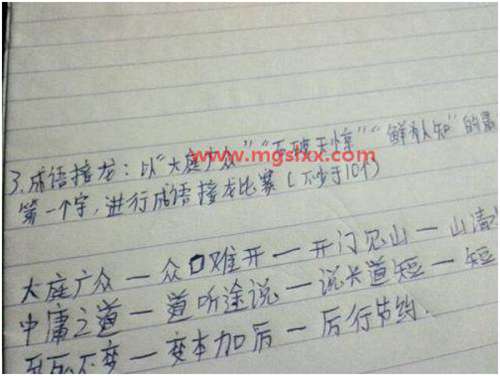 3.成语接龙：以“大庭广众”“石破天惊”“鲜有人知”的最
www.mgslxx.com
第一个字，进行成语接龙比赛（不少于10个）
大庭广众一众口难开一开门见山一山清
中庸之道一道听途说一说长道短一短
不变一变本加后一后行节约.